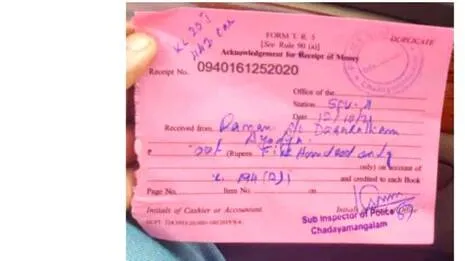 KL 20 T
FORM T. R. 5
DUPLICATE
[See Rule 90 (a)]
Acknowledgement for Receipt of Money
Receipt No. 0940161252020
Office of the
Station
Date 12/10/21
Received from Raman S/o Dasarathan
Ayodya
₹ 500/- (Rupees Five Hundred only
only) on account of
194(D) and credited to each Book
Page No. Item No on
Initials of Cashier or Accountant Initials Officer
Sub Inspector of Police
Chadayamangalam